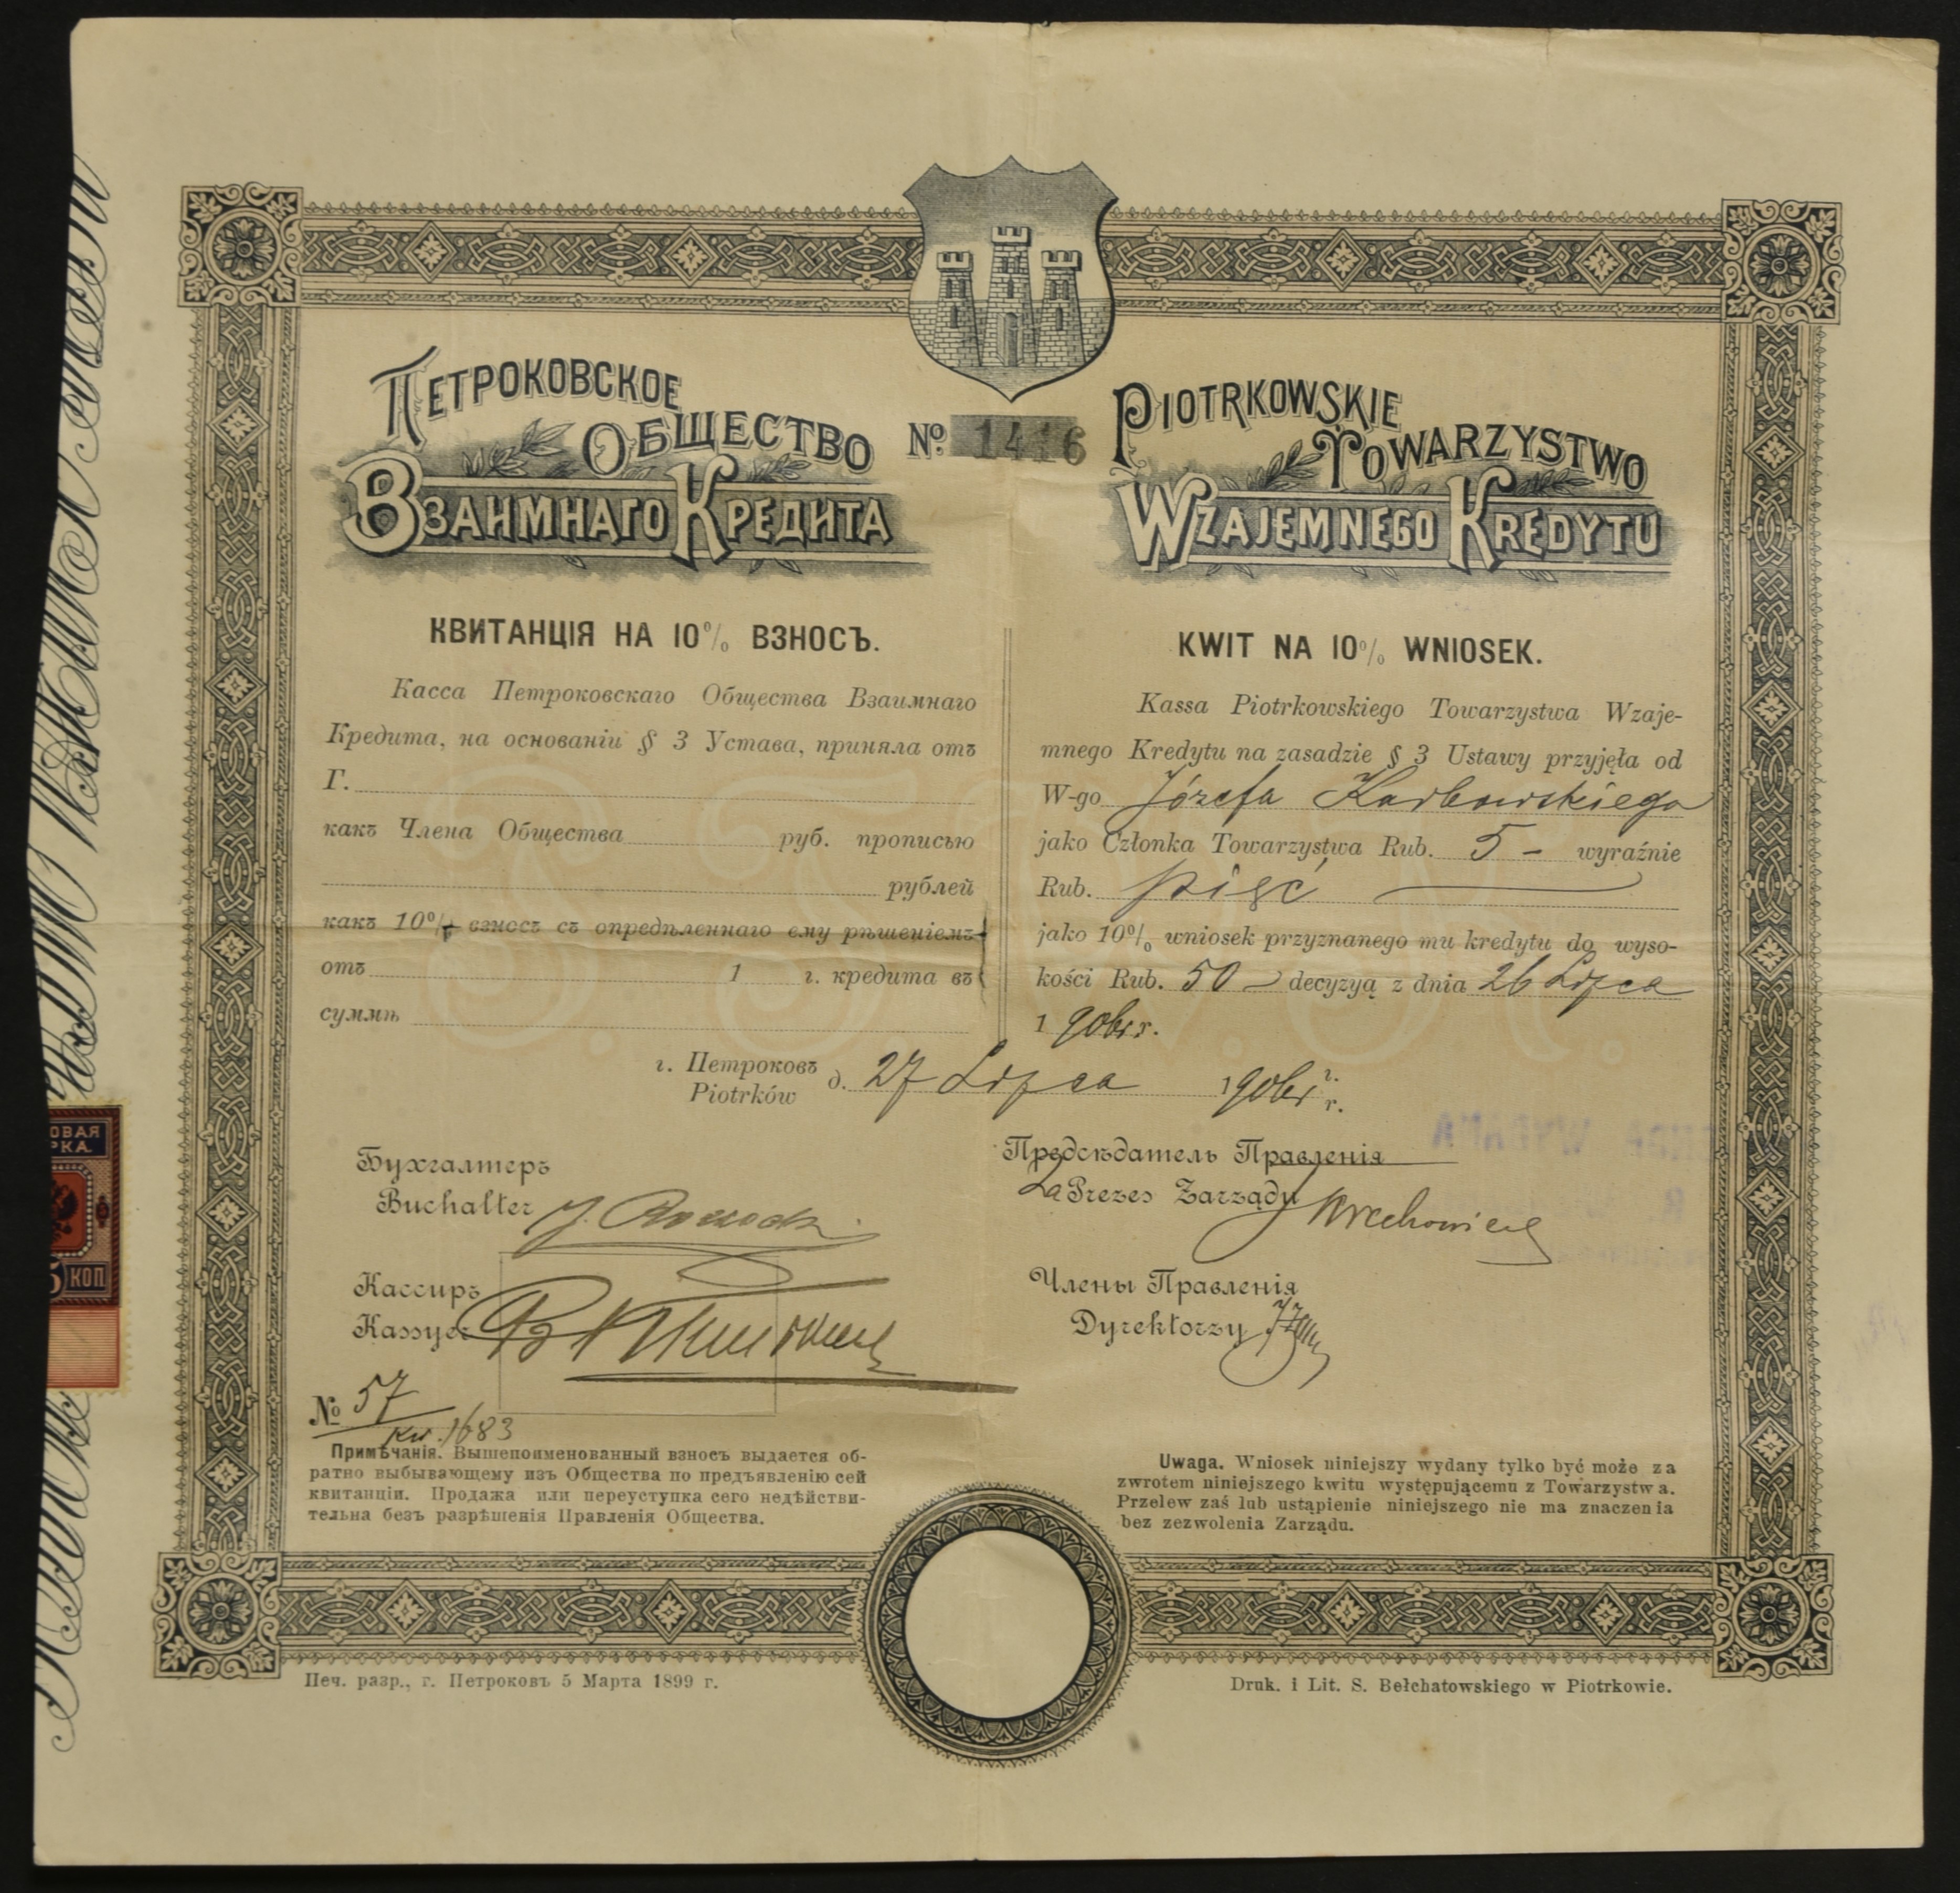 ПЕТРОКОВСКОЕ
ОБЩЕСТВО
ВЗАИМНАГО КРЕДИТА
№ 1416
PIOTRKOWSKIE
TOWARZYSTWO
WZAJEMNEGO KREDYTU
КВИТАНЦІЯ НА 10% ВЗНОСЪ.
Касса Петроковскаго Общества Взаимнаго
Кредита, на основаніи § 3 Устава, приняла отъ
Г.
какъ Члена Общества руб. прописью
рублей
какъ 10% взносъ съ опредѣленнаго ему рѣшеніемъ
отъ 1 г. кредита въ
суммѣ
KWIT NA 10% WNIOSEK.
Kassa Piotrkowskiego Towarzystwa Wzaje-
mnego Kredytu na zasadzie § 3 Ustawy przyjęła od
W-go Józefa Karbowskiego
jako Członka Towarzystwa Rub. 5 – wyraźnie
Rub. pięć
jako 10% wniosek przyznanego mu kredytu do wyso-
kości Rub. 50 – decyzyą z dnia 26 Lipca
1 906 r.
г. Петроковъ
Piotrków
д. 27 Lipca 1906 г.
r.
Бухгалтеръ
Buchalter
Кассиръ
Kassyer
Предсѣдатель Правленія
Za Prezes Zarządu
Члены Правленія
Dyrektorzy
№ 57
1683
Примѣчанія. Вышепоименованный взносъ выдается об-
ратно выбывающему изъ Общества по предъявленію сей
квитанціи. Продажа или переуступка сего недѣйстви-
тельна безъ разрѣшенія Правленія Общества.
Uwaga. Wniosek niniejszy wydany tylko być może za
zwrotem niniejszego kwitu występującemu z Towarzystwa.
Przelew zaś lub ustąpienie niniejszego nie ma znaczenia
bez zezwolenia Zarządu.
Печ. разр., г. Петроковъ 5 Марта 1899 г.
Druk. i Lit. S. Bełchatowskiego w Piotrkowie.
P. T. W. K.
5 КОП